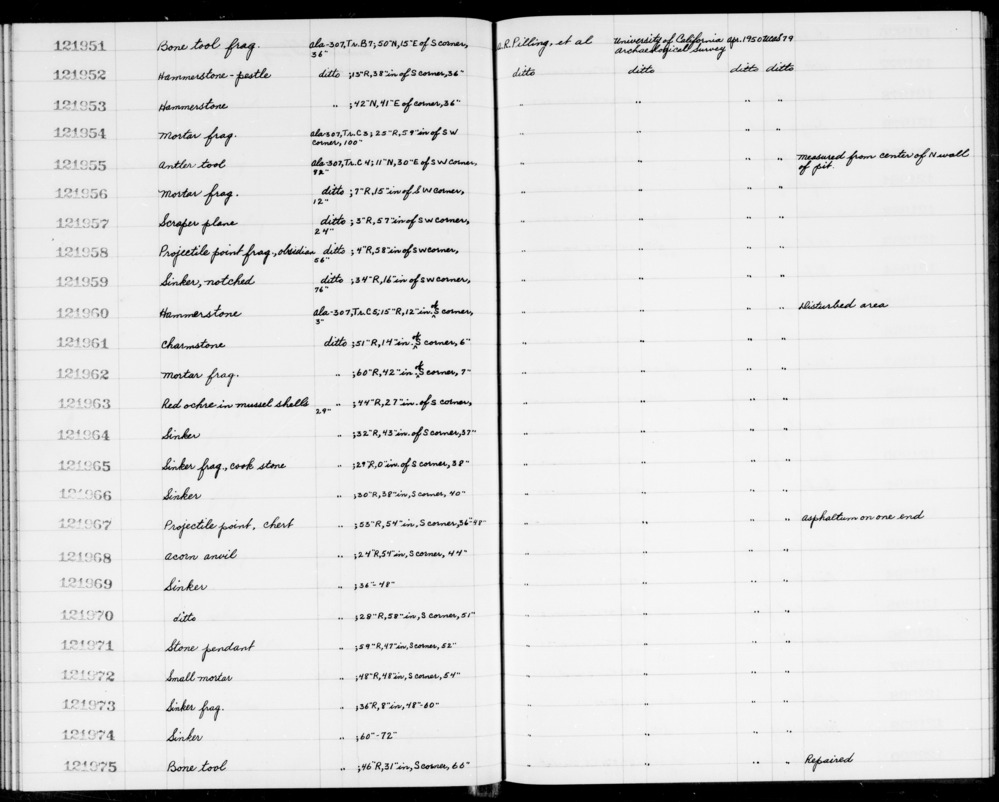 121951 Bone tool frag. Ala-307, Tr. B7; 50"N, 15"E of S corner, 36" A.R. Pilling, et al University of California Archaeological Survey Apr. 1950 79
121952 Hammerstone-pestle ditto ; 15"R, 38"in of S corner, 36" ditto ditto ditto ditto
121953 Hammerstone " ; 42"N, 41"E of corner, 36" " " " "
121954 Mortar frag. Ala-307, Tr. C3; 25"R, 59"in of SW corner, 100" " " " "
121955 Antler tool Ala-307, Tr. C4; 11"N, 30"E of SW corner, 92" " " " " Measured from center of N wall of pit.
121956 Mortar frag. ditto ; 7"R, 15"in of SW corner, 12" " " " "
121957 Scraper plane ditto ; 3"R, 57"in of SW corner, 24" " " " "
121958 Projectile point frag., obsidian ditto ; 4"R, 58"in of SW corner, 56" " " " "
121959 Sinker, notched ditto ; 34"R, 16"in of SW corner, 76" " " " "
121960 Hammerstone Ala-307, Tr. C5; 15"R, 12"in. of S corner, 3" " " " " Disturbed area
121961 Charmstone ditto ; 51"R, 14"in. of S corner, 6" " " " "
121962 Mortar frag. " ; 60"R, 42"in. of S corner, 7" " " " "
121963 Red ochre in mussel shells " ; 44"R, 27"in. of S corner, 29" " " " "
121964 Sinker " ; 32"R, 43"in. of S corner, 37" " " " "
121965 Sinker frag., cook stone " ; 29"R, 0"in. of S corner, 38" " " " "
121966 Sinker " ; 30"R, 38"in, S corner, 40" " " " "
121967 Projectile point, chert " ; 53"R, 54"in, S corner, 36"-48" " " " " Asphaltum on one end
121968 Acorn anvil " ; 24"R, 54"in, S corner, 44" " " " "
121969 Sinker " ; 36"-48" " " " "
121970 ditto " ; 28"R, 58"in, S corner, 51" " " " "
121971 Stone pendant " ; 59"R, 47"in, S corner, 52" " " " "
121972 Small mortar " ; 48"R, 48"in, S corner, 54" " " " "
121973 Sinker frag. " ; 36"R, 8"in, 48"-60" " " " "
121974 Sinker " ; 60"-72" " " " "
121975 Bone tool " ; 46"R, 31"in, S corner, 66" " " " " Repaired